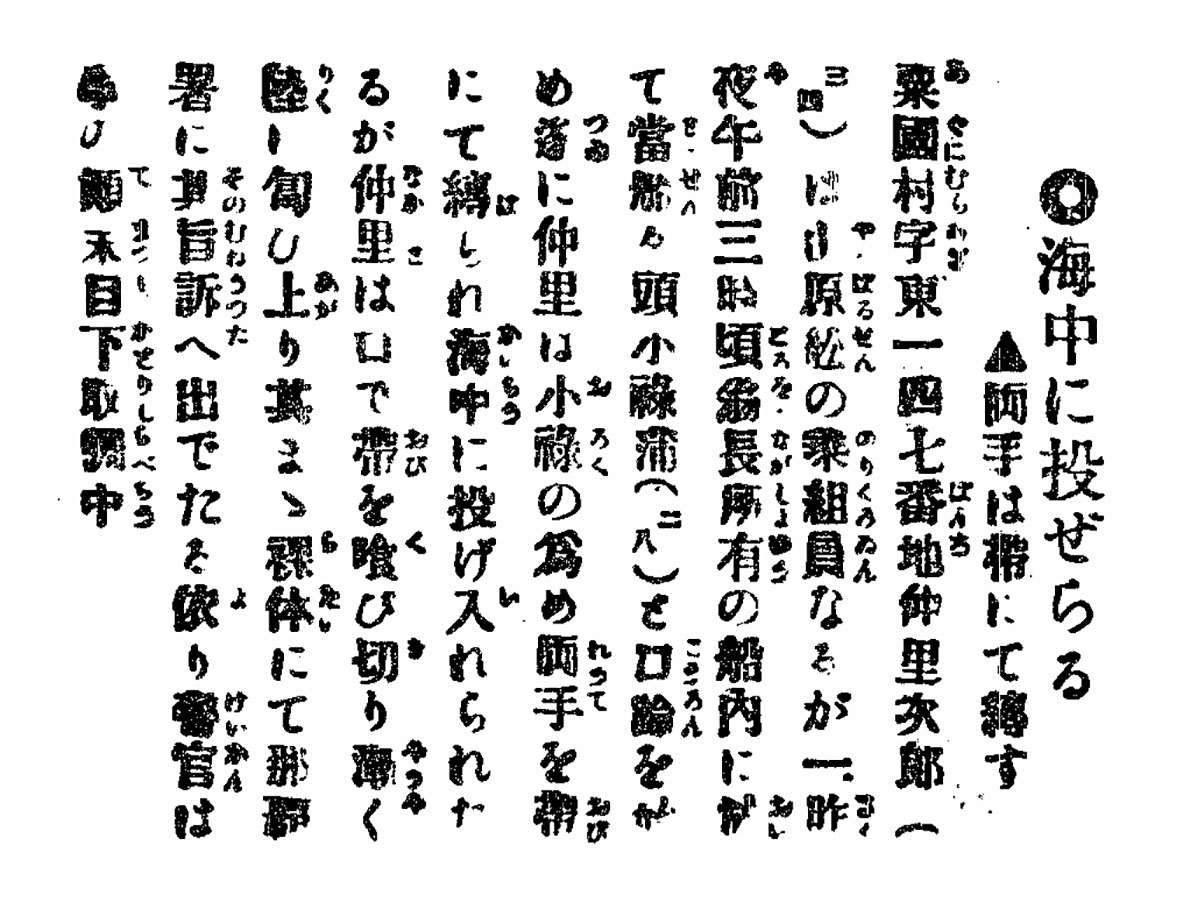 ◎海中に投ぜらる
▲両手は帯にて縛す
粟國村字東一四七番地仲里次郎(
三四)は山原舩の乗組員なるが一昨
夜午前三時頃 長所有の船内に
て當船 頭小祿蒲(二八)と口論を
め遂に仲里は小祿の爲め両手を帯
にて縛しれ海中に投げ入れられた
るが仲里は口で帯を喰ひ切り漸く
陸に匍ひ上り其まゝ裸体にて那覇
署に其旨訴へ出でたる依り警官は
目下取調中